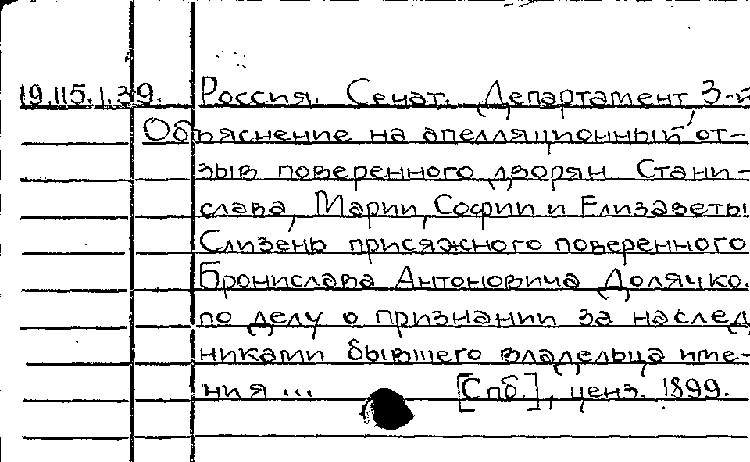 19.115.1.39. Россия. Сенат. Департамент, 3-й
Объяснение на апелляционный от-
зыв поверенного дворян Стани-
слава, Марии, Софии и Елизаветы
Слизень присяжного поверенного
Бронислава Антоновича Долячко.
по делу о признании за наслед
никами бывшего владельца име-
ния ... [Спб.], ценз. 1899.